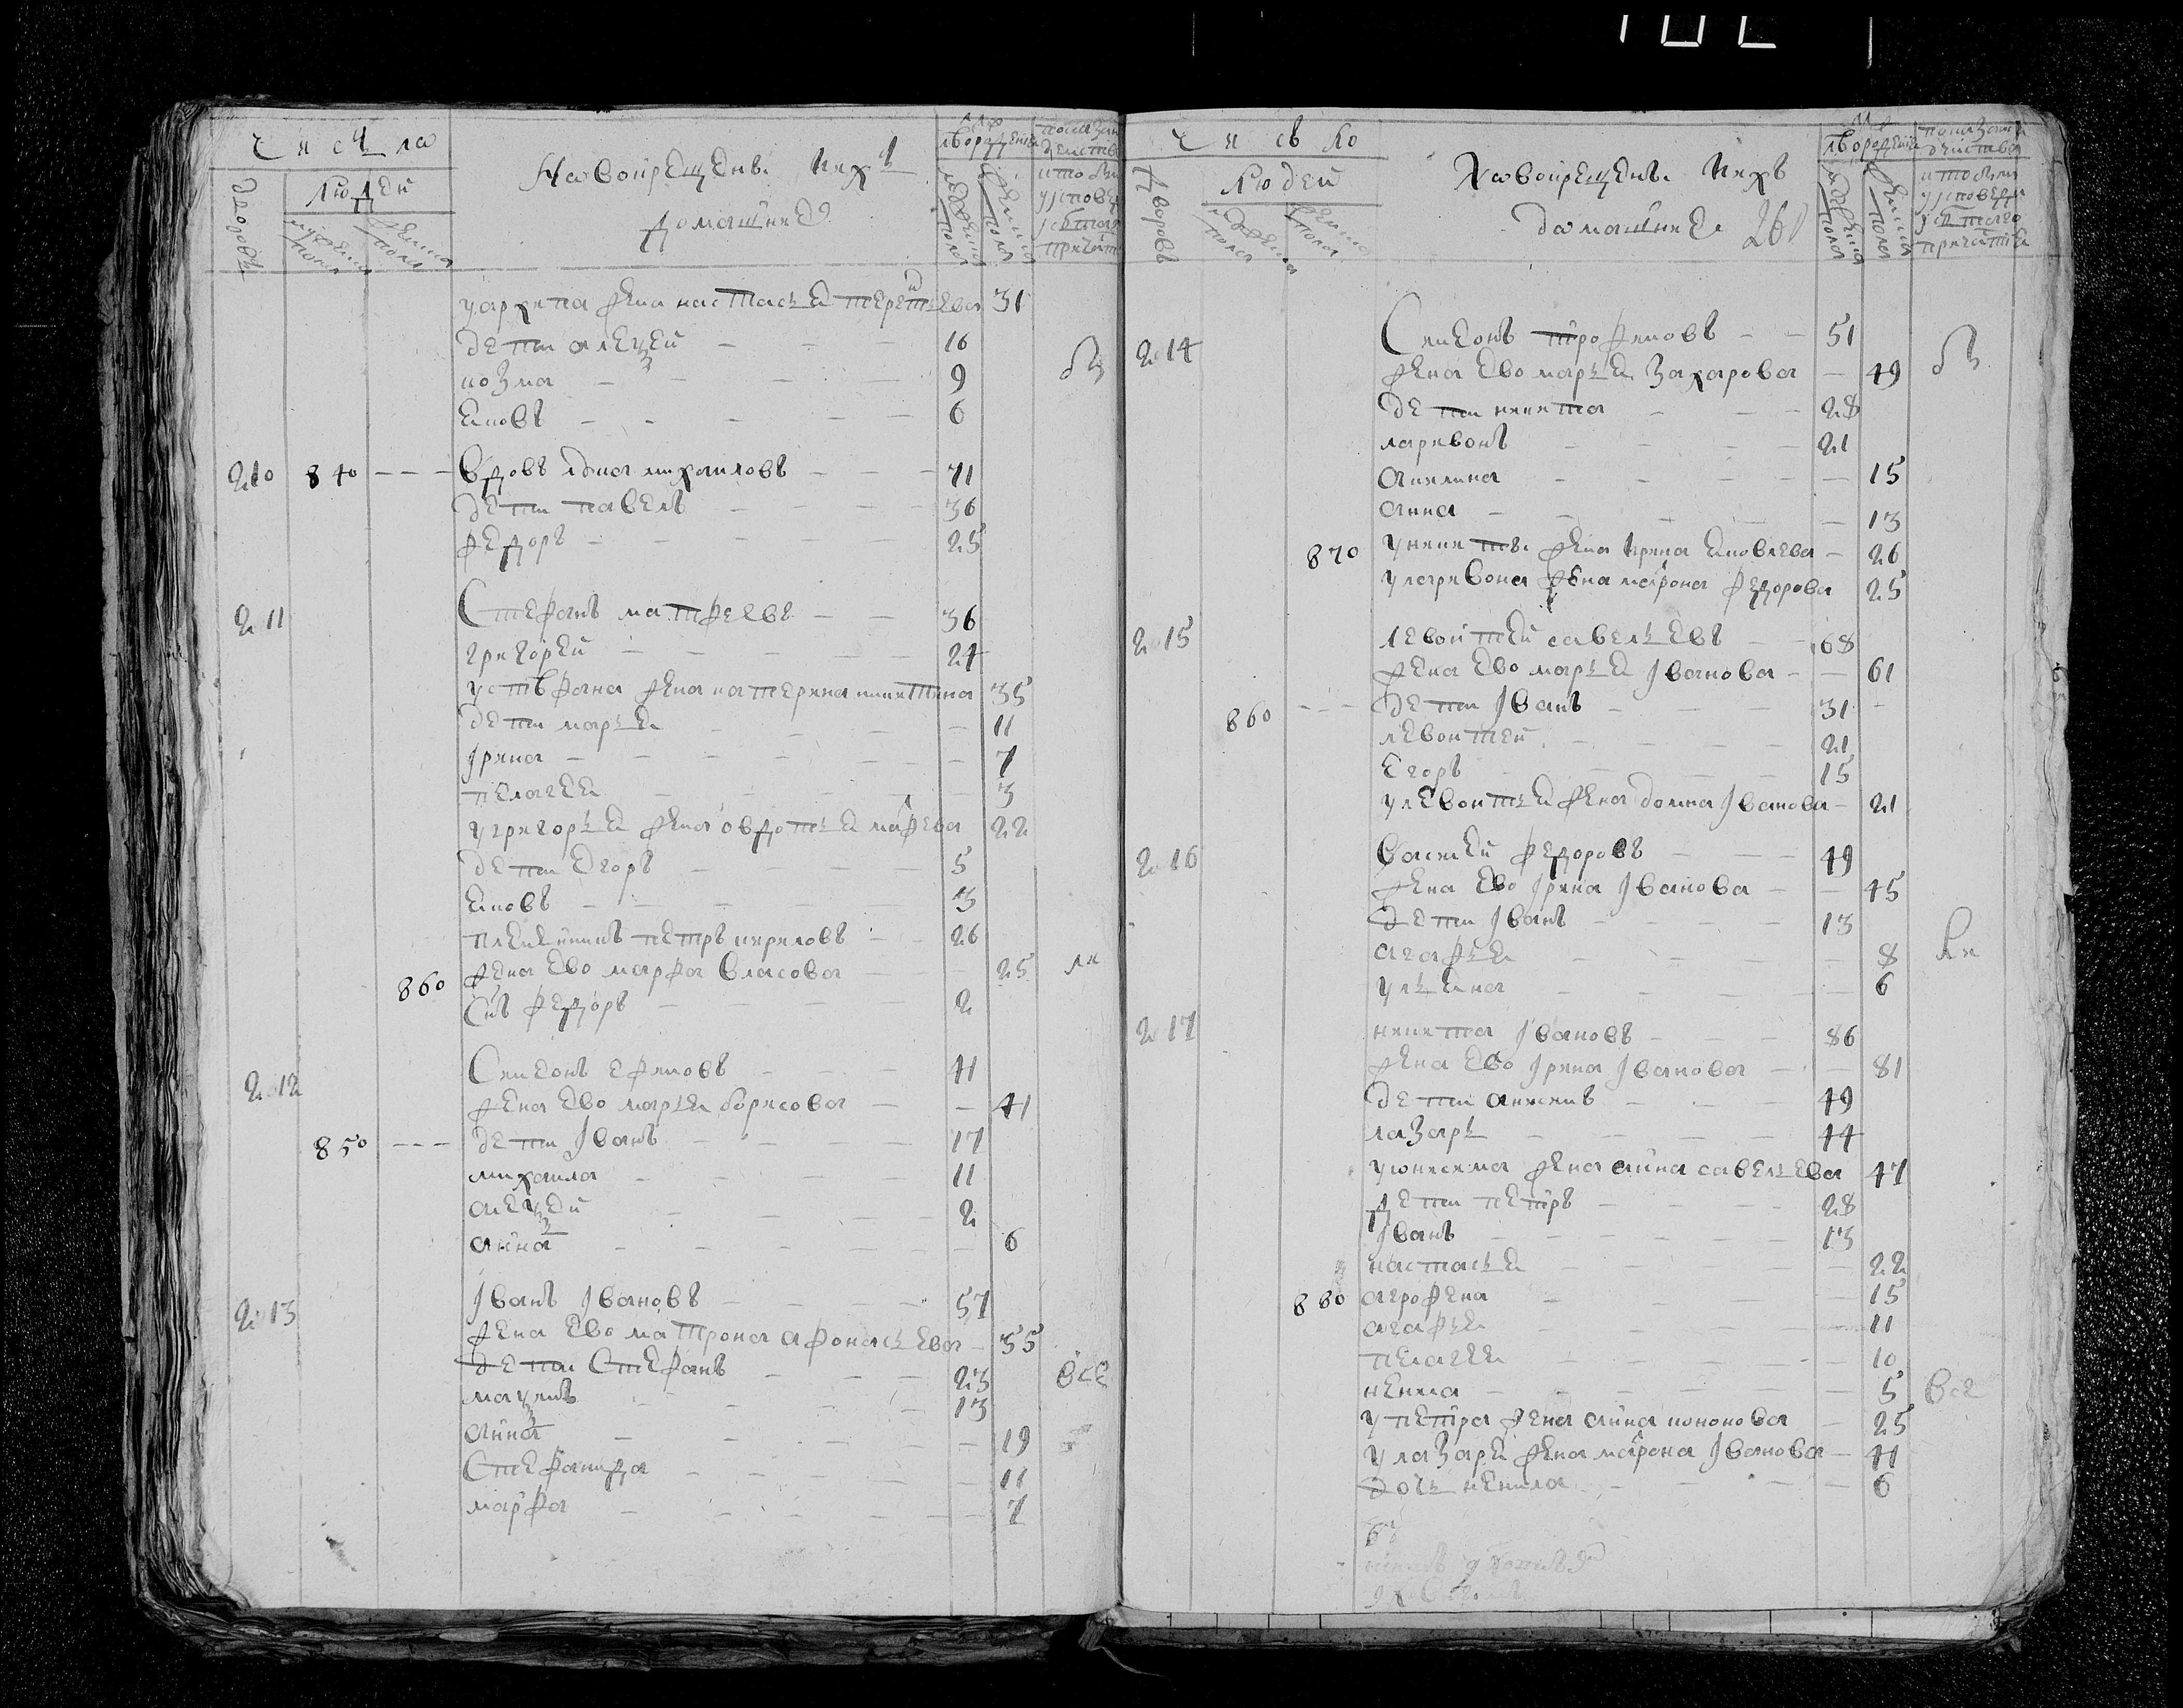 число
дворовъ
людей
мужеска полу
женска полу
Новокрещены ихъ
домашнеѣ
мужеска полу
женска полу
у архипа жена настасья терентьева 31
дети алеѯей 16
козма 9
яковъ 6
210 840 вдовъ михаиловъ 71
дети павелъ 36
федоръ 25
211 Стефанъ матфеевъ 36
григорей 24
у стефана жена катерина никитина 35
дети марья 11
ирина 7
пелагея 3
у григорья жена овдотья 22
дети егоръ 5
яковъ 3
племянникъ петръ кириловъ 26
860 жена ево марфа власова 25
снъ федоръ 2
212 Симеонъ ефимовъ 41
жена ево марья борисова 41
850 дети Iванъ 17
михаила 11
алеѯей 2
анна 6
213 Iванъ Iвановъ 57
жена ево матрона афонасьева 55
дети Стефанъ 23
маѯимъ 13
анна 19
Стефанида 11
марфа 7
все
число
дворовъ
людей
мужеска полу
женска полу
Новокрещены ихъ
домашнея 261
мужеска полу
женска полу
214 Симеонъ трофимовъ 51
жена ево марья Захарова 49
дети никита 28
ларивонъ 21
акилина 15
анна 13
870 у никиты жена ирина яковлева 26
у ларивона жена матрона федорова 25
215 левонтей савельевъ 68
жена ево марья Iванова 61
860 дети Iванъ 31
левонтей 21
егоръ 15
у левонтья жена домна Iванова 21
216 Василей федоровъ 49
жена ево Iрина Iванова 45
дети Iванъ 13
агафья 8
ульяна 6
217 никита Iвановъ 86
жена ево Iрина Iванова 81
дети анисимъ 49
лазарь 44
у онисима жена анна савельева 47
дети петръ 28
Iванъ 13
настасья 22
880 агрофена 15
агафья 11
пелагея 10
ненила 5
все
у петра жена анна кононова 25
у лазаря жена матрона Iванова 41
дочь ненила 6